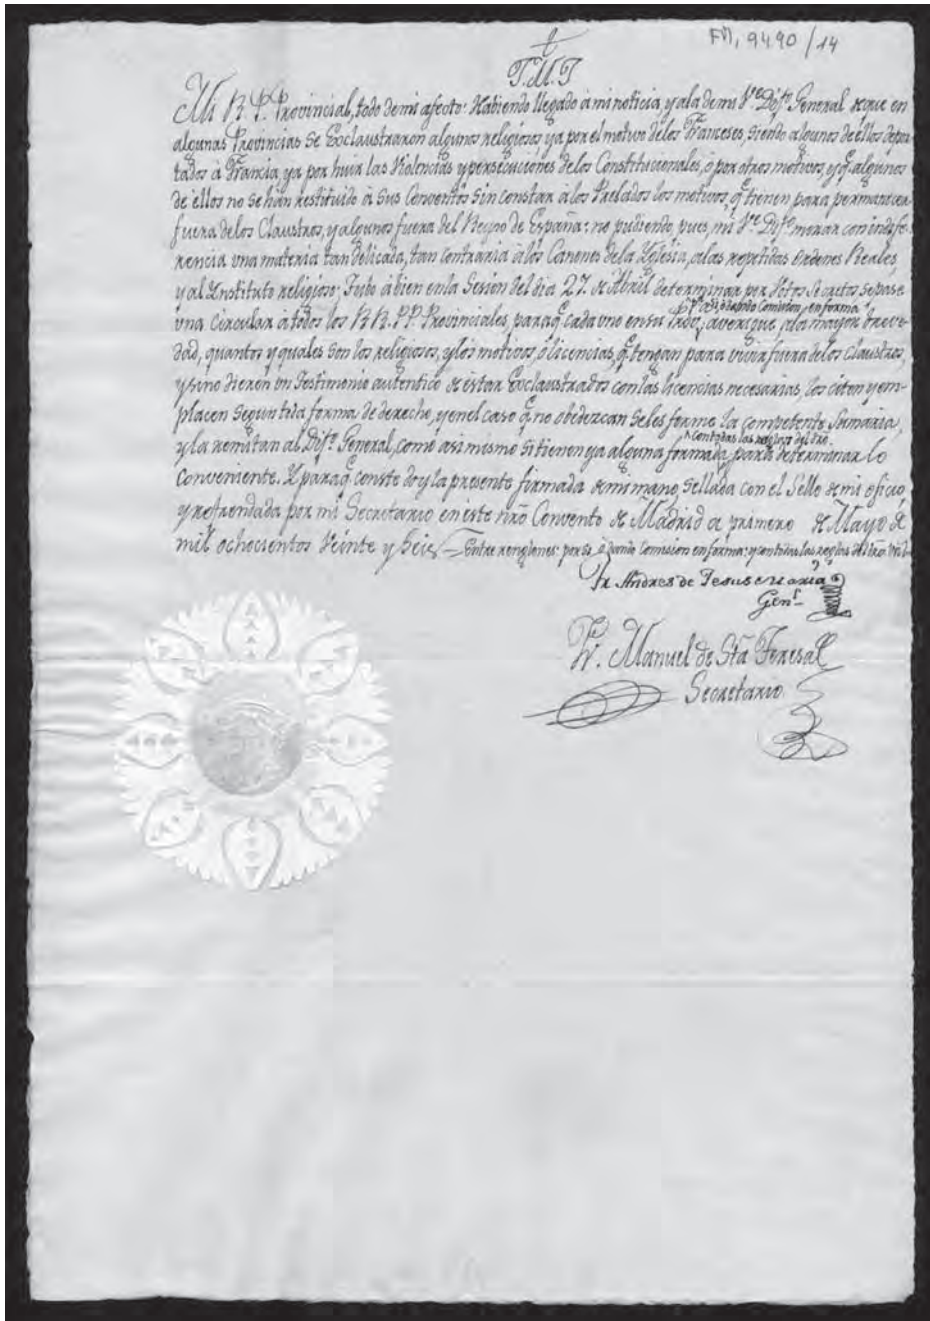 FM, 9490/14
J.M.J
Mi R. P. Provincial, todo de mi afecto: Habiendo llegado à mi noticia, y a la de mi Ve. Difo. General de que en
algunas Provincias se Exclaustraron algunos religiosos ya por el motivo de los Franceses, siendo algunos de ellos depor-
tados à Francia, ya por huir las Violencias y persecuciones de los Constitucionales, ò por otros motivos, y q. algunos
de ellos no se hàn restituido à Sus Conventos sin constar à los Prelados los motivos, q. tienen para permanecer
fuera de los Claustros, y algunos fuera del Reyno de España: no pudiendo pues, mi Ve. Difo. mirar con indife-
rencia una materia tan delicada, tan contraria à los Canones de la Yglesia, a las repetidas Ordenes Reales,
y al Ynstituto religioso; Tubo à bien en la Sesion del dia 27. de Abril determinar por Votos Secretos se pase
una Circular à todos los R.R. P.P. Provinciales, para q. cada uno en su
por sì ò dando Comision en forma
averigue, a la mayor breve-
dad, quantos y quales son los religiosos, y los motivos, ò licencias, q. tengan para vivir fuera de los Claustros,
y sino dieren un Testimonio autentico de estar Exclaustrados con las licencias necesarias, los citen y em-
placen segun toda forma de derecho, y en el caso q. no obedezcan se les forme la competente Sumaria,
con todas las reglas del dro.
y la remitan al Difo. General, como asi mismo si tienen ya alguna formada, para determinar lo
Conveniente. Y para q. conste doy la presente firmada de mi mano, Sellada con el Sello de mi oficio
y refrendada por mi Secretario en este nro Convento de Madrid a primero de Mayo de
mil ochocientos Veinte y Seis = Entre renglones: por sì, ò dando Comision en forma: y con todas las reglas del dro.
Fr. Andres de Jesus Maria
Genl.
Fr. Manuel de Sta. Teresa
Secretario